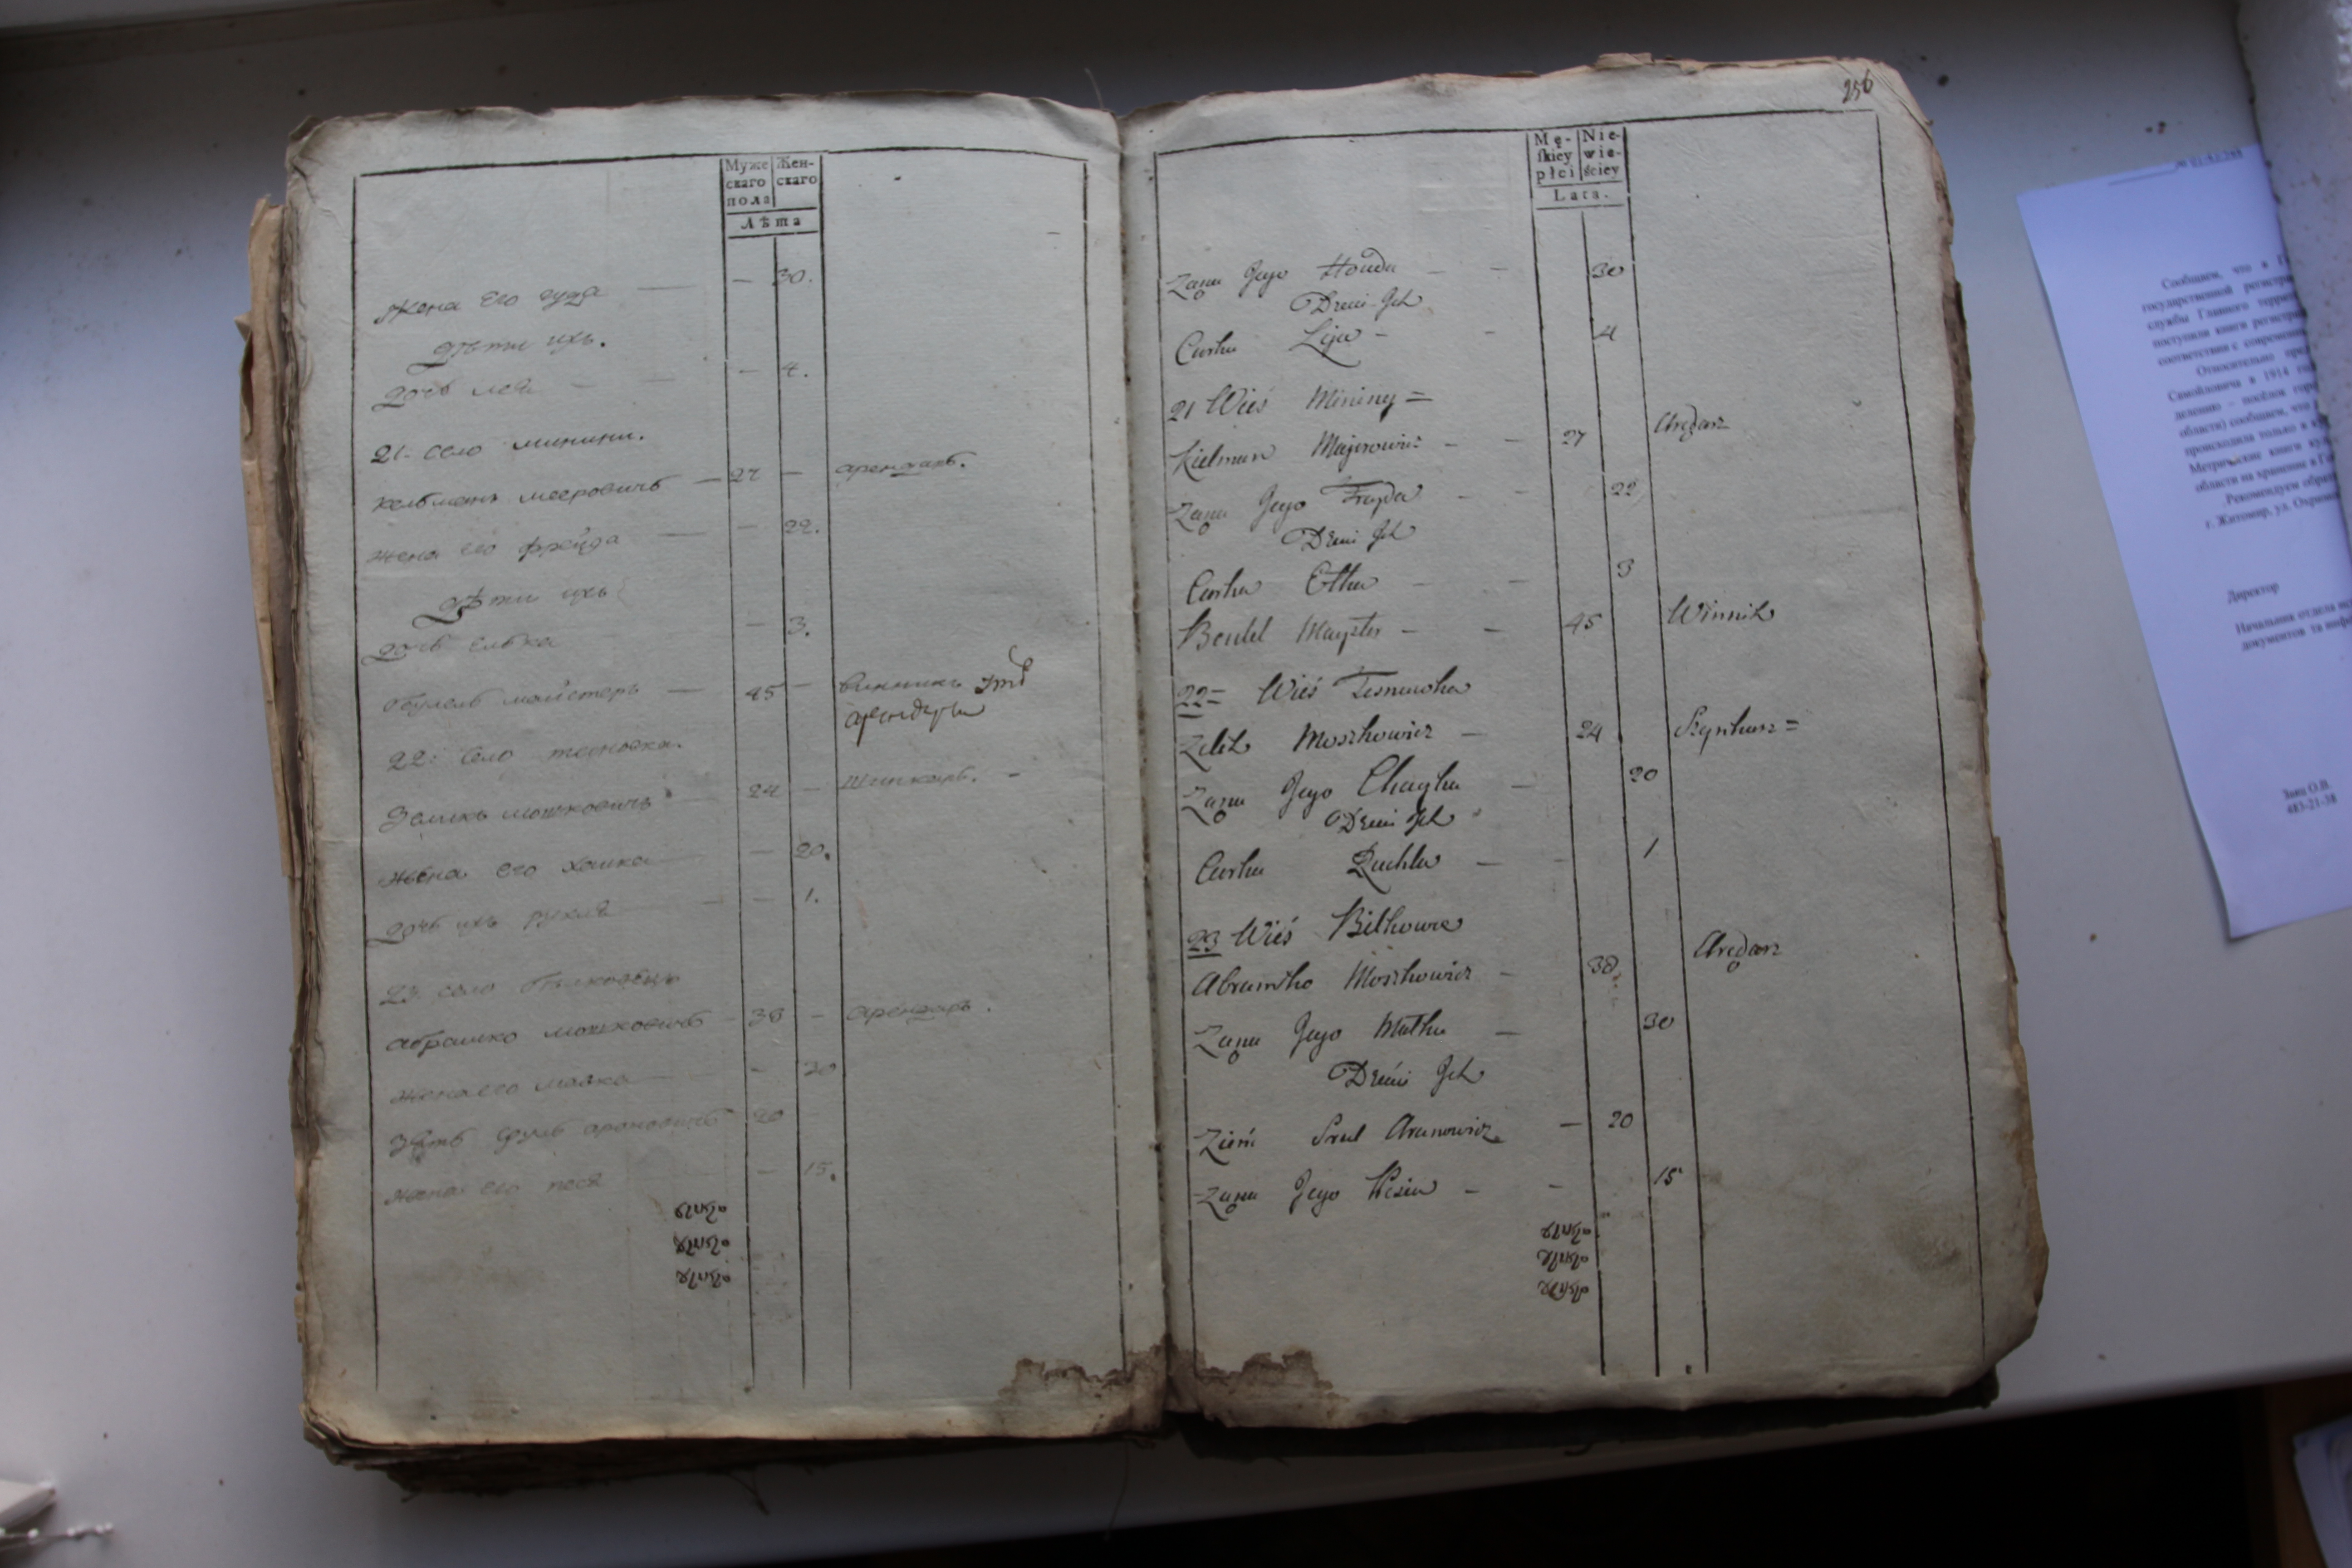 Муже
скаго
пола
Жен-
скаго
Лѣта
Жена Его гуда — — 30.
Дѣти ихъ.
дочь лея — — — 4.
21. село минини.
Кельманъ мееровичъ — 27 — арендарь.
жена его фрейда — — 22.
Дѣти ихъ
дочь елька — 3.
майстеръ — 45 — винникъ
22: село тесновка.
Зеликъ мошковичъ — 24 — шинкарь. —
жена его хайка — — 20.
дочь ихъ рухля — — — 1.
23. село
абрашко мошковичъ — 38 — арендарь.
жена его малка — - 30
Зять сруль ароновичъ 20
жена его песя — 15.
256
Mę-
ſkiey
płci
Nie-
wie-
ściey
Lata.
Zona Jego Houda — — 30
Dzieci Ich
Curka Leja — — 4
21 Wieś Mininy =
Kielman Majerowicz — — 27 Aredarz
Zona Jego Frayda — — 22
Dzieci Ich
Curka Etka — — 3
Mayster — — 45 Winnik
22 = Wieś Tesnowka
Zelik Moszkowicz — 24 Szynkarz =
Zona Jego Chayka — 20
Dzieci Ich
Curka Ruchla — — 1
23 Wieś Bilkowce
Abramko Moszkowicz — 38 Aredarz
Zona Jego Malka — 30
Dzieci Ich
Zieńć Srul Aranowicz — 20
Zona Jego Pesia — — 15
Сообщаем, что в
государственной регистра
службы Главного террит
поступили книги регистра
соответствии с современ
Относительно пред
Самойловича в 1914 го
делению – посёлок гор
области) сообщаем, что
происходила только в
Метрические книги
области на хранение в
Рекомендуем обра
г. Житомир, ул. Охрим
Директор
Начальник отдела
документов та
Заяц О.В.
483-21-38